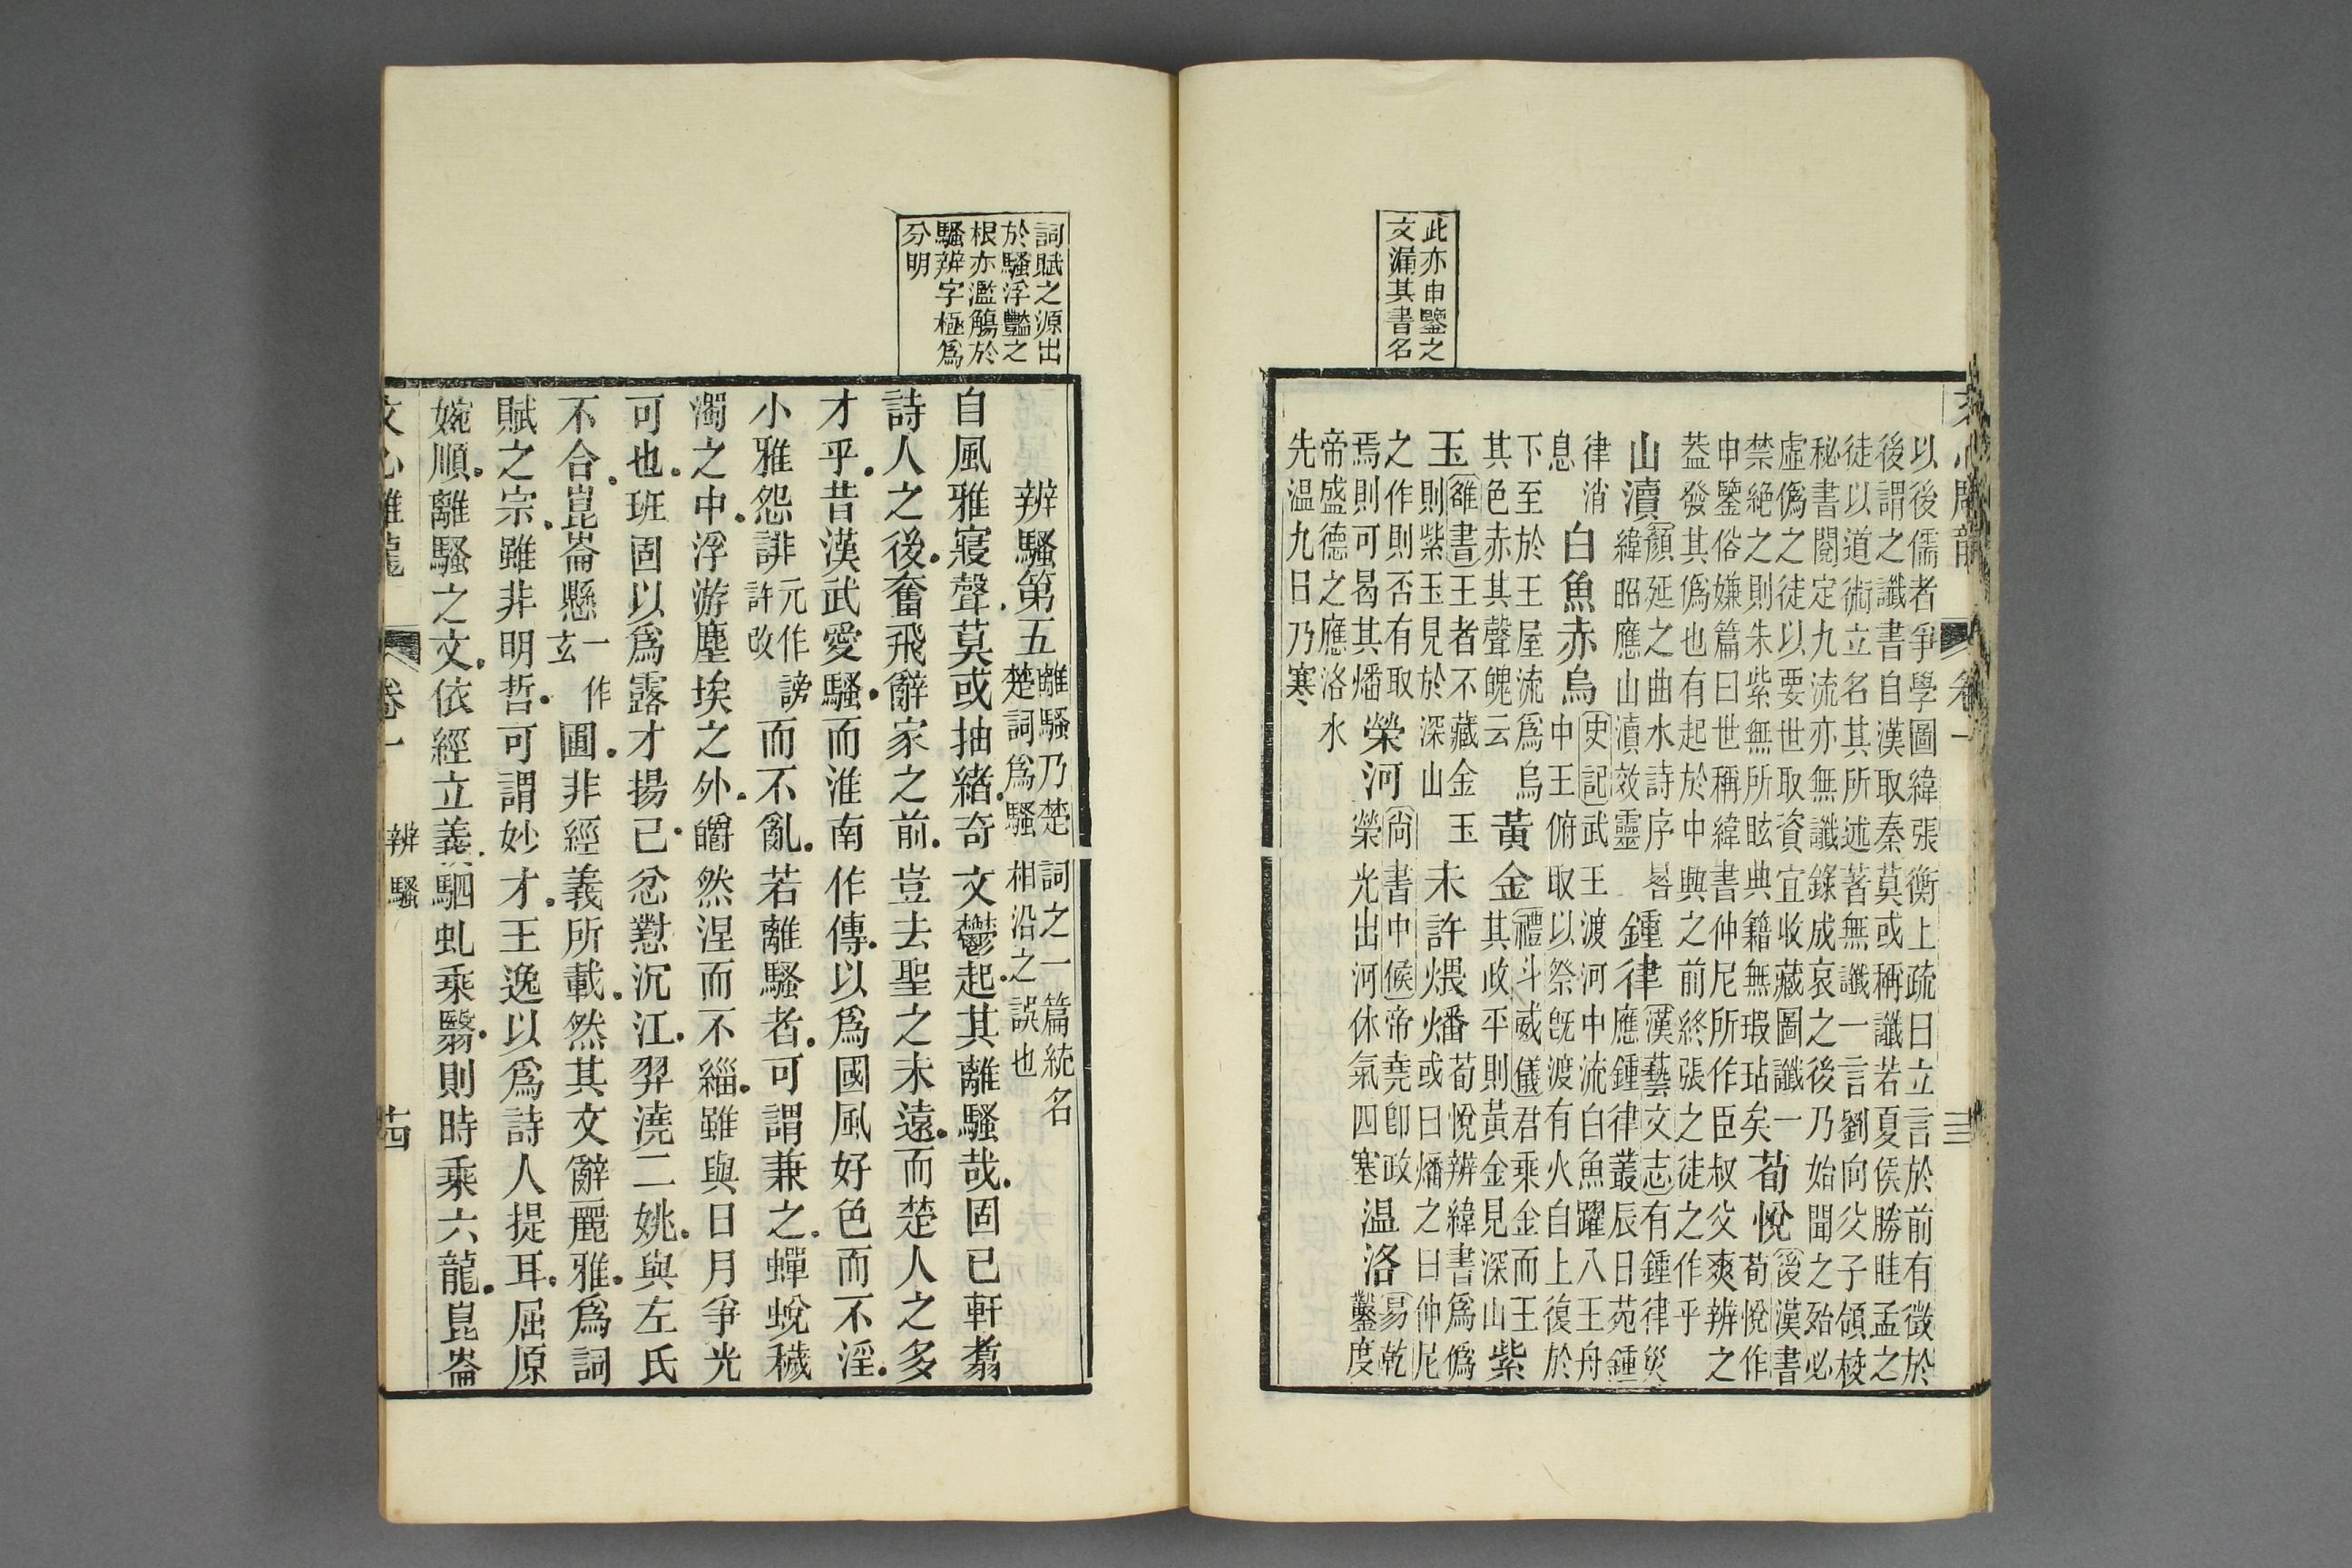 此亦申鑒之
文漏其書名
以後儒者爭學圖緯張衡上疏曰立言於前有徵於
後謂之讖書自漢取秦莫或稱讖若夏侯勝眭孟之
徒以道術立名其所述著無讖一言劉向父子領校
秘書閱定九流亦無讖錄成哀之後乃始聞之殆必
虛偽之徒以要世取資宜收藏圖讖一
禁絕之則朱紫無所眩典籍無瑕玷矣
荀悅
後漢書
荀悅作
申鑒俗嫌篇曰世稱緯書仲尼所作臣叔父爽辨之
葢發其僞也有起於中興之前終張之徒之作乎
山瀆
顏延之曲水詩序晷
緯昭應山瀆效靈
鍾律
漢藝文志有鍾律災
應鍾律叢辰日苑鍾
律消
息
白魚赤烏
史記武王渡河中流白魚躍八王舟
中王俯取以祭旣渡有火自上復於
下至於王屋流爲烏
其色赤其聲魄云
黃金
禮斗威儀君乘金而王
其政平則黃金見深山
紫
玉
雒書王者不藏金玉
則紫玉見於深山
未許煨燔
荀悅辨緯書爲僞
或曰燔之曰仲尼
之作則否有取
焉則可曷其燔
榮河
尙書中候帝堯卽政
榮光出河休氣四塞
温洛
易乾
鑿度
帝盛德之應洛水
先温九日乃寒
詞賦之源出
於騷浮豔之
根亦濫觴於
騷辨字極爲
分明
辨騷第五
離騷乃楚詞之一篇統名
楚詞爲騷相沿之誤也
自風雅寢聲莫或抽緒奇文鬱起其離騷哉固已軒翥
詩人之後奮飛辭家之前豈去聖之未遠而楚人之多
才乎昔漢武愛騷而淮南作傳以爲國風好色而不淫
小雅怨誹元作謗許改而不亂若離騷者可謂兼之蟬蛻穢
濁之中浮游塵埃之外皭然涅而不緇雖與日月爭光
可也班固以爲露才揚己忿懟沉江羿澆二姚與左氏
不合崑崙懸一作玄圃非經義所載然其文辭麗雅爲詞
賦之宗雖非明哲可謂妙才王逸以爲詩人提耳屈原
婉順離騷之文依經立義駟虬乘翳則時乘六龍崑崙
文心雕龍 卷一 辨騷 十四